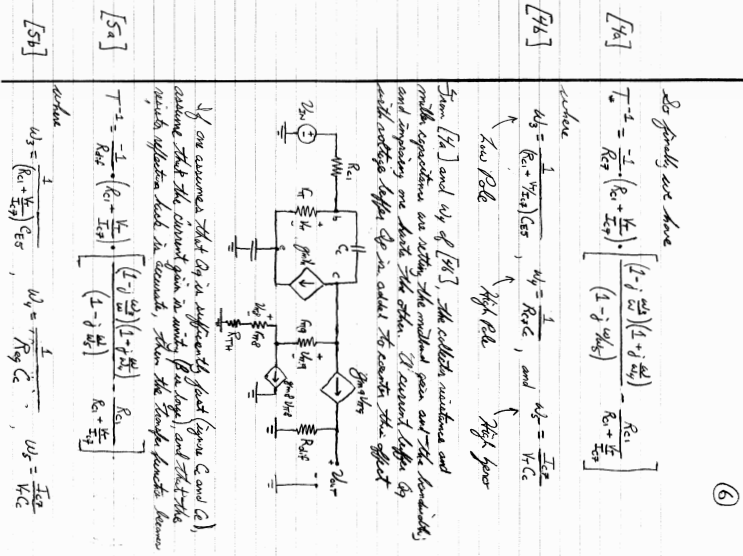 ⑥
So finally we have
[4a] T⁻¹ = -1/R_C7 · (R_C1 + V_T/I_C7) · [ (1 - j ω_3/ω)(1 + j ω/ω_4) / (1 - j ω/ω_5) - R_C1 / (R_C1 + V_T/I_C7) ]
where
[4b] ω_3 = 1 / ((R_C1 + V_T/I_C7) C_E5) , ω_4 = 1 / (R_C7 C_C) , and ω_5 = I_C7 / (V_T C_C)
Low Pole High Pole High zero
From [4a] and ω_4 of [4b], the collector resistance and
miller capacitance are setting the midband gain and the bandwidth;
and improving one hurts the other. A current buffer Q9
with voltage buffer Q8 is added to counter this effect
V_IN R_C1 b C_C c
r_π V_π g_m V_π e
r_π9 V_π9 g_m9 V_π9
r_π8 V_π8 g_m8 V_π8 R_TH
R_dif V_OUT
If one assumes that Q9 is sufficiently fast (ignore C_C and C_e),
assume that the current gain is unity (β is large), and that the
resistor reflection back is accurate, then the transfer function becomes
[5a] T⁻¹ = -1/R_dif · (R_C1 + V_T/I_C7) · [ (1 - j ω_3/ω)(1 + j ω/ω_4) / (1 - j ω/ω_5) - R_C1 / (R_C1 + V_T/I_C7) ]
where
[5b] ω_3 = 1 / ((R_C1 + V_T/I_C7) C_E5) , ω_4 = 1 / (R_eq C_C) , ω_5 = I_C7 / (V_T C_C)